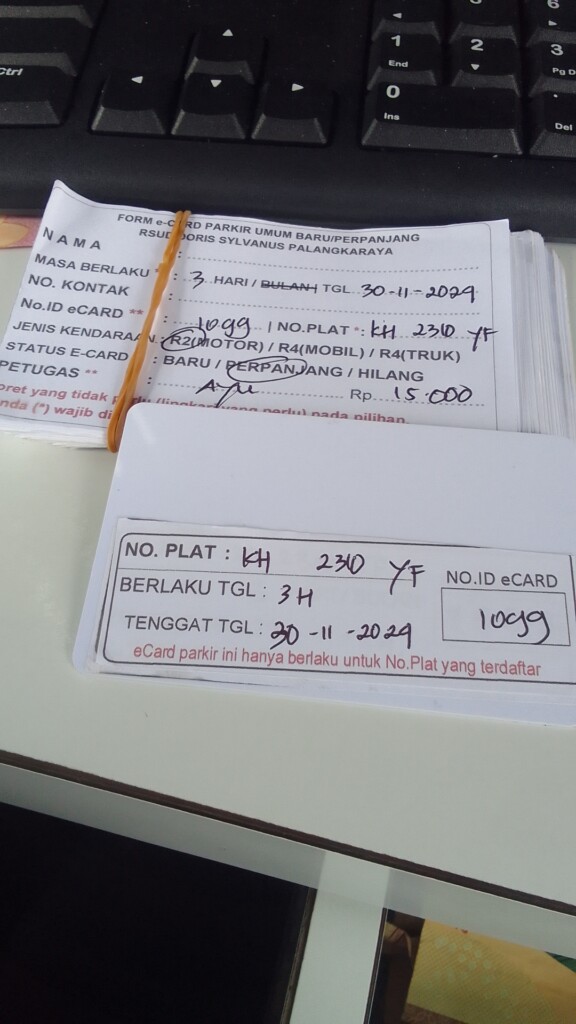 Ctrl
1
End
2
3
Pg D
6
0
Ins
Del
FORM e-CARD PARKIR UMUM BARU/PERPANJANG
RSUD DORIS SYLVANUS PALANGKARAYA
NAMA :
MASA BERLAKU * : 3 HARI / BULAN | TGL 30-11-2024
NO. KONTAK :
No.ID eCARD ** : 1099 | NO.PLAT *: KH 2310 YF
JENIS KENDARAAN : R2(MOTOR) / R4(MOBIL) / R4(TRUK)
STATUS E-CARD : BARU / PERPANJANG / HILANG
PETUGAS ** : Ayu Rp 15.000
oret yang tidak perlu (lingkari yang perlu) pada pilihan.
nda (*) wajib di
NO. PLAT : KH 2310 YF
BERLAKU TGL : 3 H
TENGGAT TGL : 30-11-2024
NO.ID eCARD
1099
eCard parkir ini hanya berlaku untuk No.Plat yang terdaftar